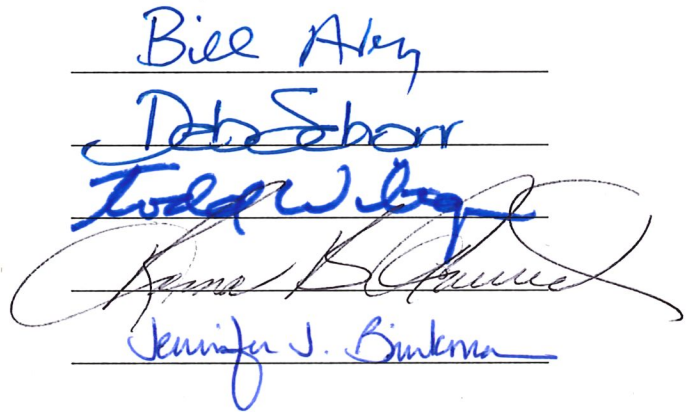 Bill Avery
Deb Schorr
Todd Wiltgen
Roma B. Amundson
Jennifer J. Brinkman